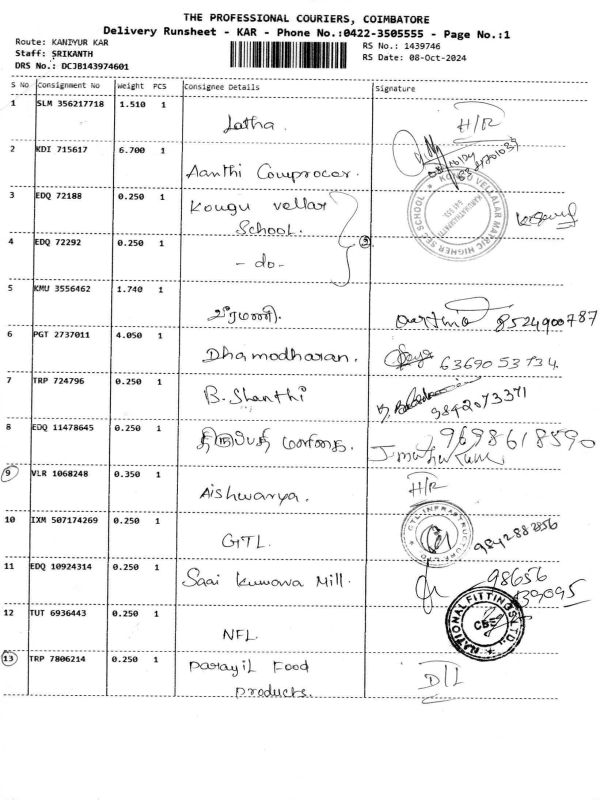 THE PROFESSIONAL COURIERS, COIMBATORE
Delivery Runsheet - KAR - Phone No.:0422-3505555 - Page No.:1
Route: KANIYUR KAR
RS No.: 1439746
Staff: SRIKANTH
RS Date: 08-Oct-2024
DRS No.: DCJB143974601
S No Consignment No Weight PCS Consignee Details Signature
1 SLM 356217718 1.510 1 Latha. H/R
2 KDI 715617 6.700 1 Aanthi Comprocer.
3 EDQ 72188 0.250 1 Kougu vellar
School.
4 EDQ 72292 0.250 1 - do -
KONGU VELLALAR MATRIC HIGHER SEC SCHOOL
5 KMU 3556462 1.740 1 வீரமணி. 8524900787
6 PGT 2737011 4.050 1 Dhamodharan. 6369053734.
7 TRP 724796 0.250 1 B. Shanthi 9842073371
8 EDQ 11478645 0.250 1 திருப்பதி 9698618590
9 VLR 1068248 0.350 1 Aishwarya. H/R
10 IXM 507174269 0.250 1 GTL. 9842882856
GTL INFRASTRUCTURE LTD
11 EDQ 10924314 0.250 1 Saai Kumara Mill. 98656
39095
12 TUT 6936443 0.250 1 NFL.
NATIONAL FITTINGS LTD. CBE
13 TRP 7806214 0.250 1 Parayil Food D/L
Products.